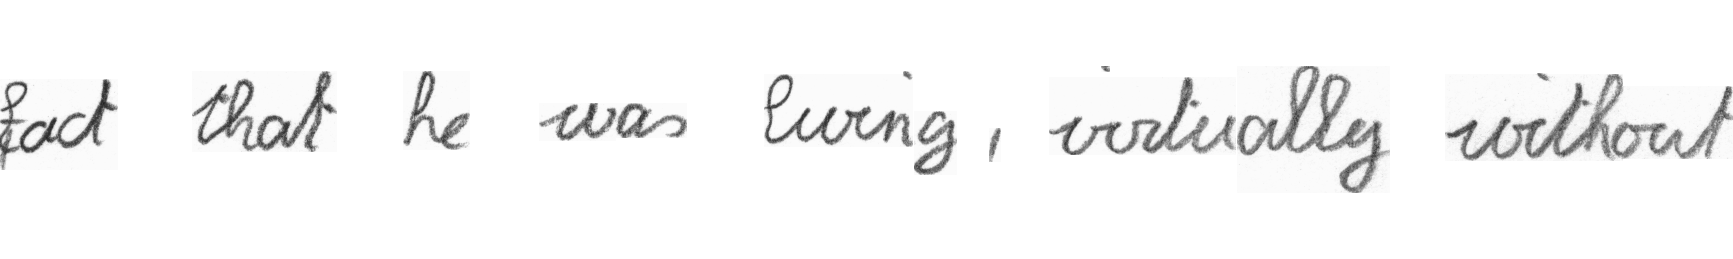 fact that he was living, virtually without